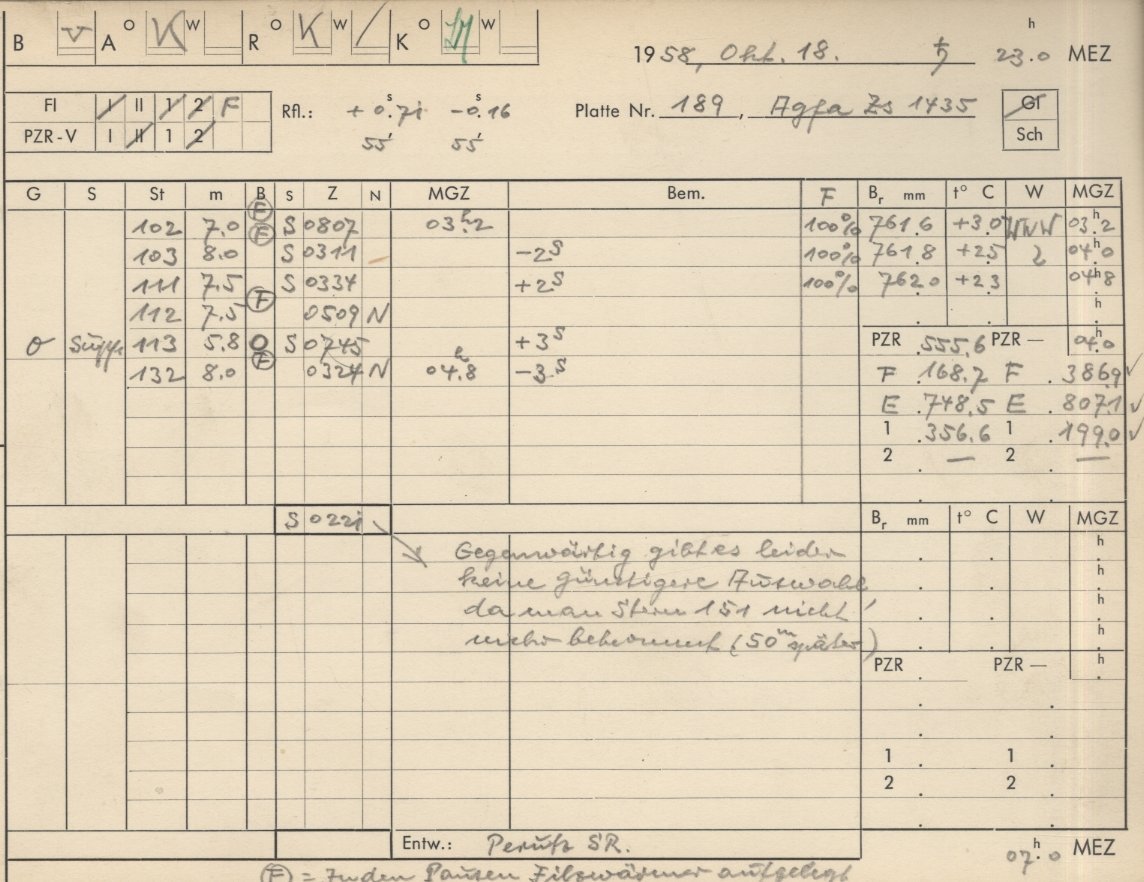 B v A o K w R o K w / K o w
1958, Okt. 18. ♄ 23.0 h MEZ
FI I II 1 2 F
PZR-V I II 1 2
Rfl.: +0.s71 -0.s16
55' 55'
Platte Nr. 189, Agfa Zs 1435
Gl
Sch
G S St m B S Z N MGZ Bem. F Br mm t° C W MGZ
102 7.0 F S 0807 03h.2 100% 761.6 +3.0 WWW 03h.2
103 8.0 F S 0311 -2s 100% 761.8 +2.5 2 04h.0
111 7.5 S 0334 +2s 100% 762.0 +2.3 04h.8
112 7.5 F 0509 N h
σ 113 5.8 O S 0745 +3s PZR .555.6 PZR — 04h.0
132 8.0 F 0324 N 04h.8 -3s F .168.7 F .3869 ✓
E .748.5 E .8071 ✓
1 .356.6 1 .1990 ✓
2 . — 2 . —
S 0221 Br mm t° C W MGZ
Gegenwärtig gibt es leider h
keine günstigere Auswahl, h
da man Stern 151 nicht h
mehr bekommt (50m später) h
PZR . PZR — h
1 . 1 .
2 . 2 .
Entw.: Perutz SR. 07h.0 MEZ
(F) = In den Pausen Filzwärmer aufgelegt